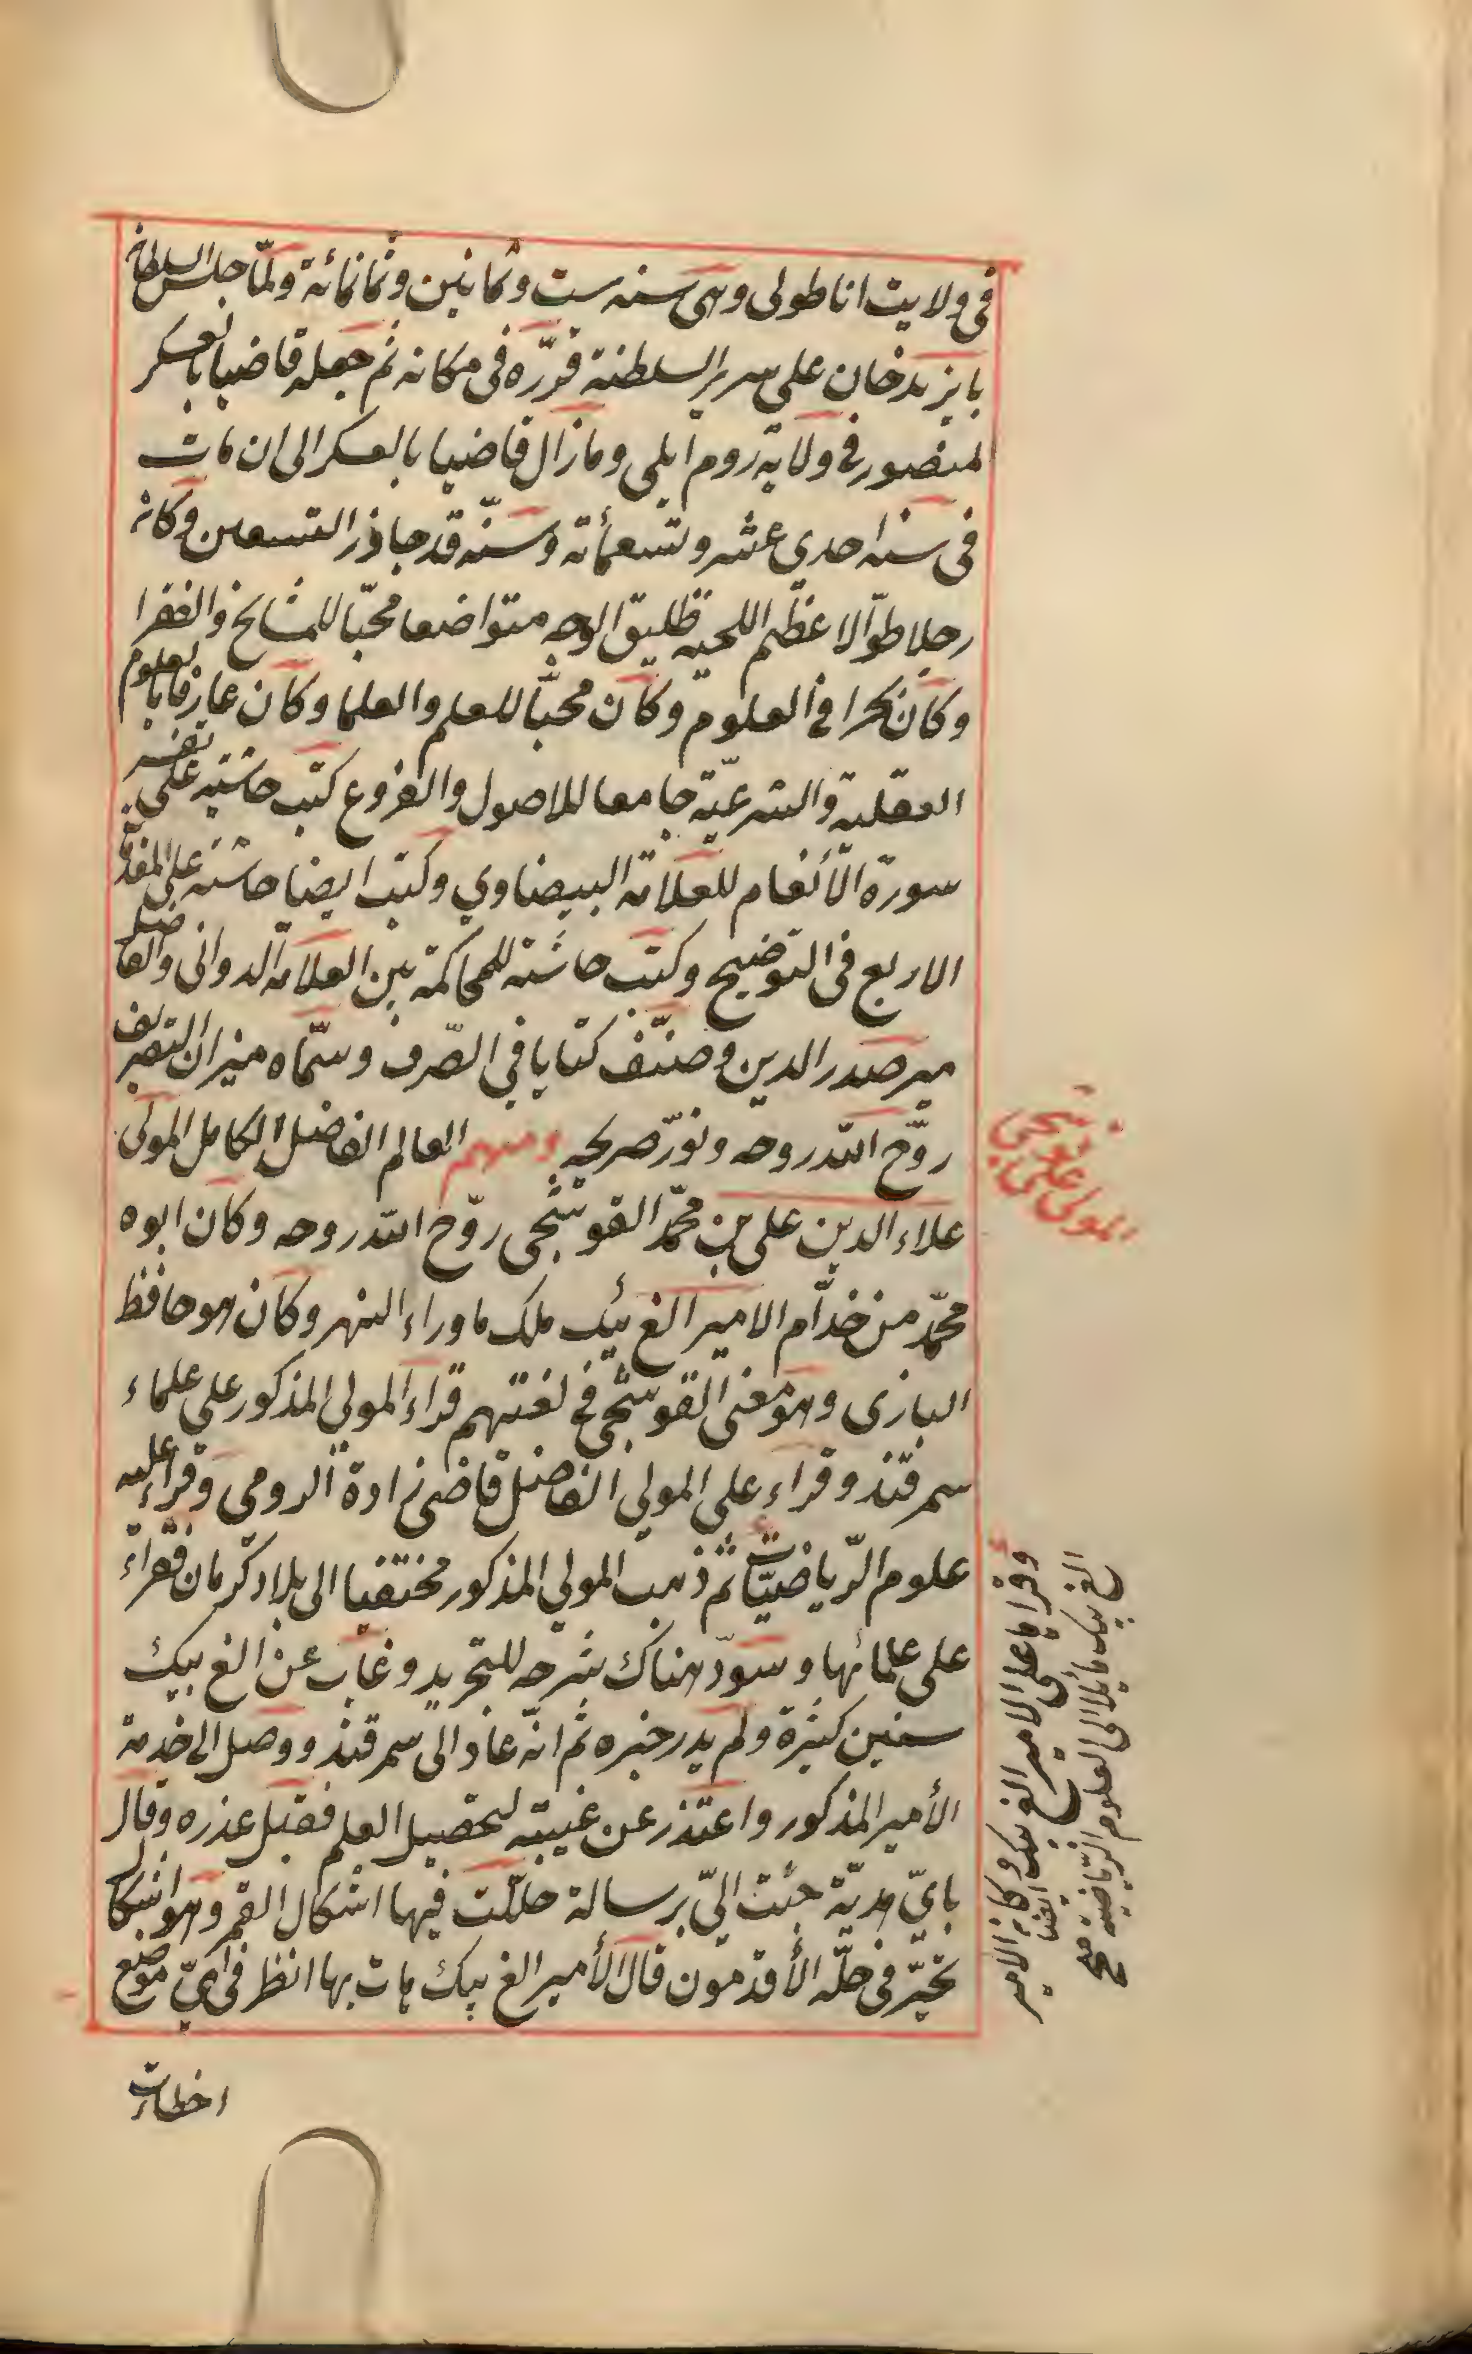 في ولايت اناطولى وهى سنه ست وثمانين وثمانمائة ولمّا جلس السلطان
بايزيد خان على سرير السلطنة قرّره فى مكانه ثم جعله قاضيا بالعسكر
لمنصور فى ولاية روم ايلى وما زال قاضيا بالعسكر الى ان مات
فى سنه احدى عشر وتسعمأئة وسنّه قد جاوز التسعين وكان
رجلا طوّالا عظّيم اللحيه طليق الوجه متواضعا محّبا للمشايخ والفقرا
وكان بحرا في العلوم وكان محبّا للعلم والعلما وكان عارفا بالعلوم
العقلية والشرعيّة جامعا للاصول والفروع كتب حاشيه على تفسير
سورة الأنعام للعلامة البيضاوي وكتب ايضا حاشيه على المقدّمات
الاربع فى التوضيح وكتب حاشية للمحاكمة بين العلامه الدوانى والفاضل
مير صدر الدين وصنّف كتابا في الصّرف وسمّاه ميزان التصريف
روّح الله روحه ونوّر ضريحه ومنهم العالم الفاضل الكامل المولى
علاء الدين على بن محمّد القوشجى روّح الله روحه وكان ابوه
محمّد من خدّام الامير الغ بيك ملك ما وراء النهر وكان هو حافظ
البازى وهو معنى القوشجى في لغتهم قراء المولى المذكور على علماء
سمرقند وقراء على المولى الفاضل قاضى زادة الرومى وقراء عليه
علوم الرّياضيّات ثم ذهب المولى المذكور مختفيا الى بلاد كرمان فقراء
على علمائها وسوّد هناك شرحه للتجريد وغاب عن الغ بيك
سنين كثيرة ولم يدر خبره ثم انّه عاد الى سمرقند ووصل الى خدمة
الأمير المذكور واعتذر عن غيبته لتحصيل العلم فقبل عذره وقال
باىّ هديّة جئت الىّ برسالة حللّت فيها اشكال القمر وهو اشكال
تحيّر فى حلّه الأقدمون قال الأمير الغ بيك هات بها انظر فى اىّ موضع
اخطات
المولى على قوشجى
وقراها على الامير الغ بيك ايضا وكان الامير
الغ بيك مائلا الى العلوم الرّياضيّة صح